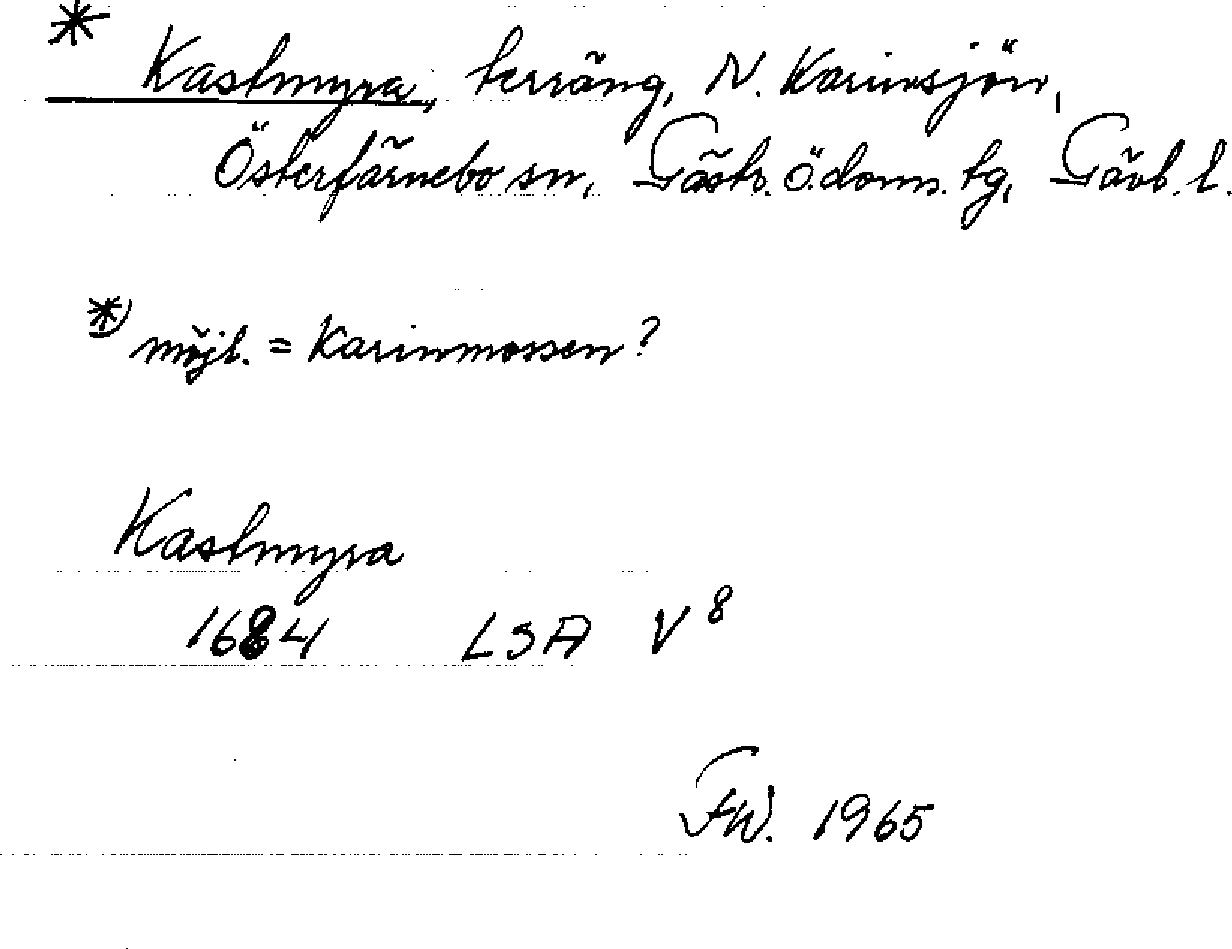 * Kastmyra, terräng, N. Karinsjön,
Österfärnebo sn, Gästr. ö. doms. tg, Gävl. l.
*) möjl. = Karinmossen?
Kastmyra
1684 LSA V 8
FW. 1965